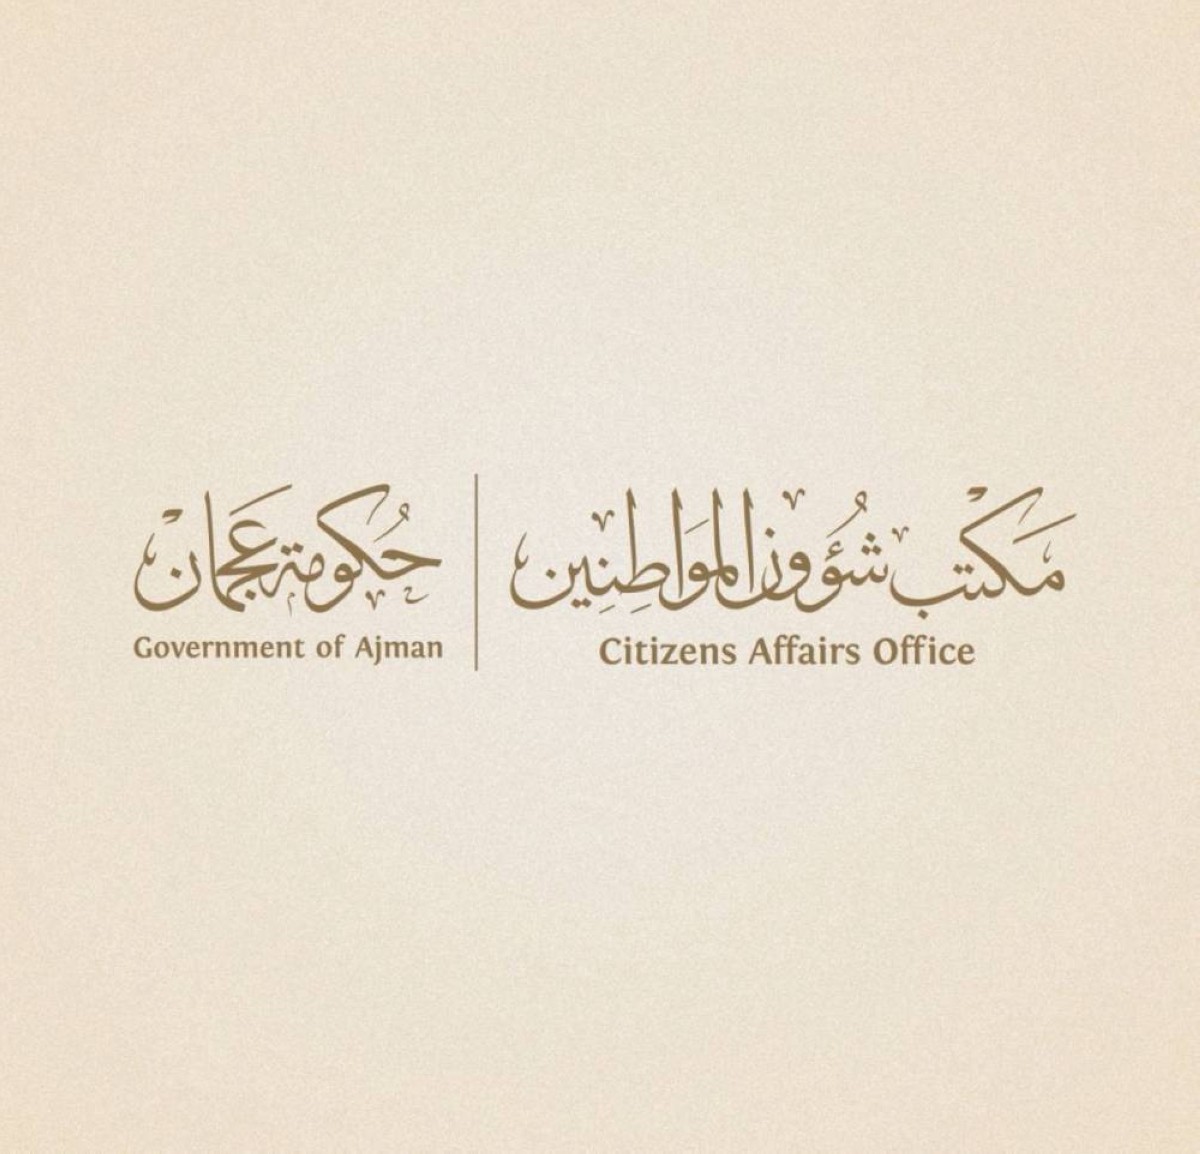 مَكتب شُؤون المَواطِنِين
Citizens Affairs Office
حُكومة عجمان
Government of Ajman